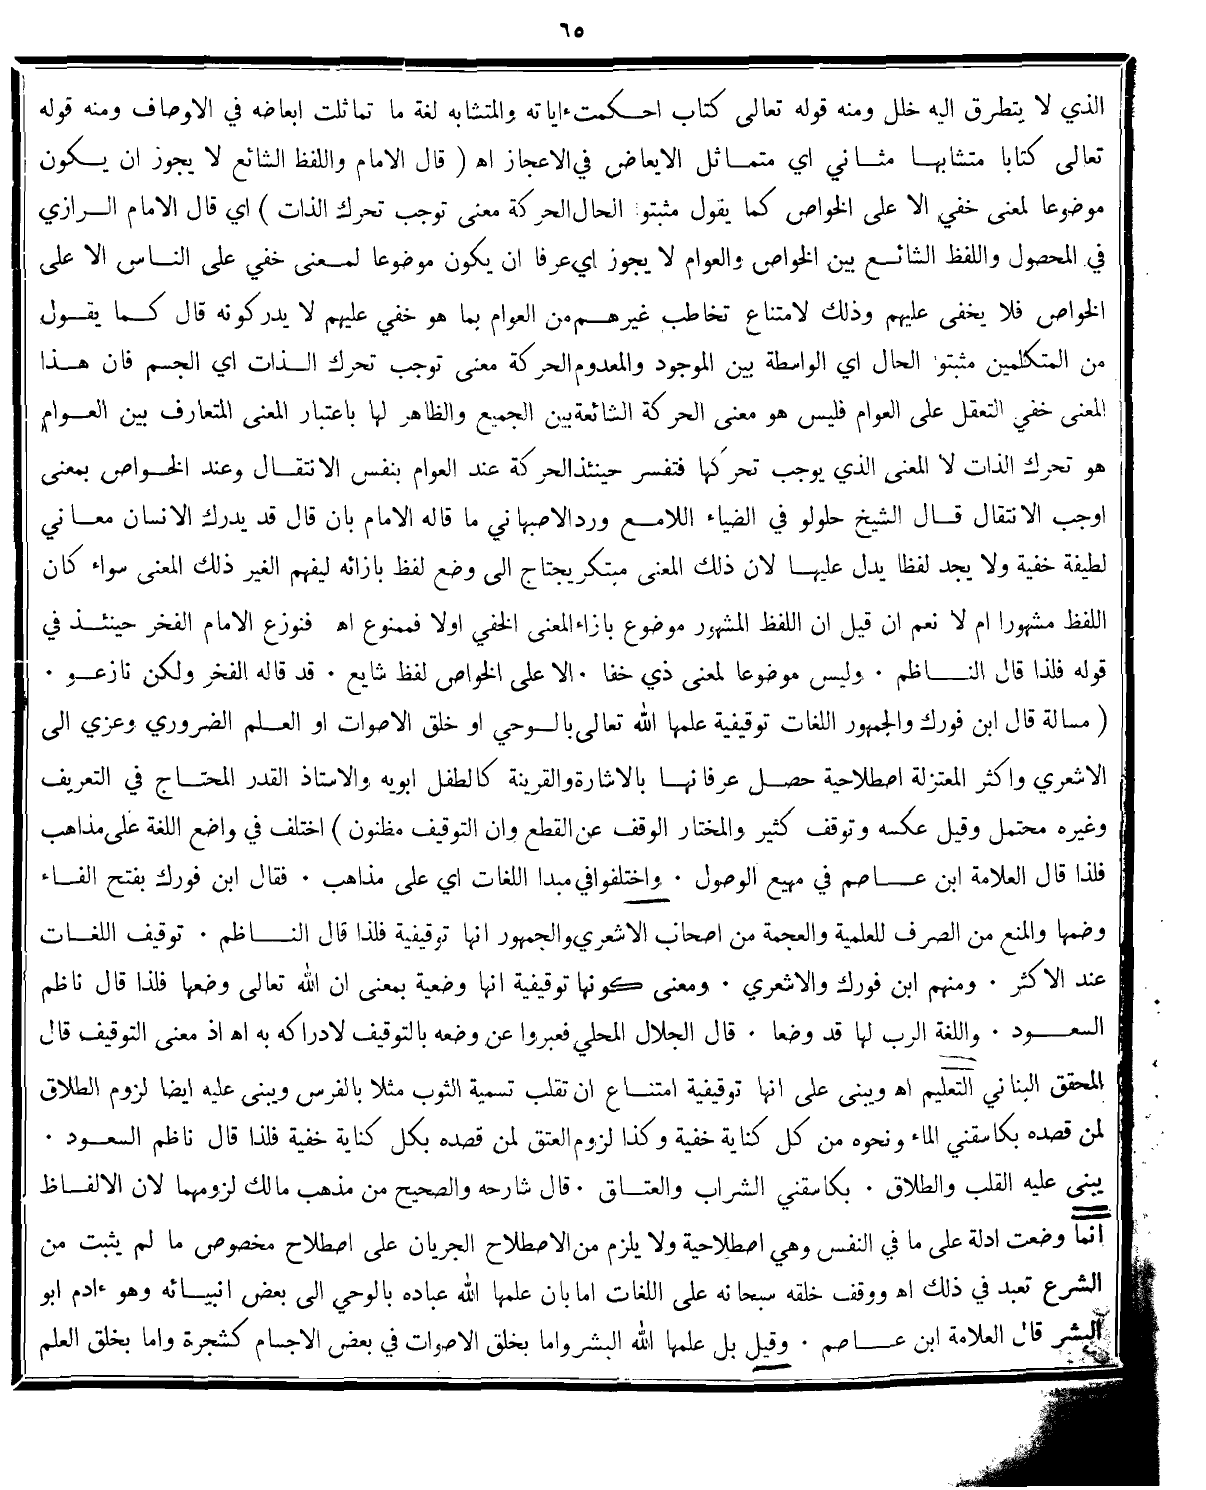 ٦٥
الذي لا يتطرق اليه خلل ومنه قوله تعالى كتاب احكمت ءاياته والمتشابه لغة ما تماثلت ابعاضه في الاوصاف ومنه قوله
تعالى كتابا متشابها مثاني اي متماثل الابعاض في الاعجاز اه ( قال الامام واللفظ الشائع لا يجوز ان يكون
موضوعا لمعنى خفي الا على الخواص كما يقول مثبتو الحال الحركة معنى توجب تحرك الذات ) اي قال الامام الرازي
في المحصول واللفظ الشائع بين الخواص والعوام لا يجوز اي عرفا ان يكون موضوعا لمعنى خفي على الناس الا على
الخواص فلا يخفى عليهم وذلك لامتناع تخاطب غيرهم من العوام بما هو خفي عليهم لا يدركونه قال كما يقول
من المتكلمين مثبتو الحال اي الواسطة بين الموجود والمعدوم الحركة معنى توجب تحرك الذات اي الجسم فان هذا
المعنى خفي التعقل على العوام فليس هو معنى الحركة الشائعة بين الجميع والظاهر لها باعتبار المعنى المتعارف بين العوام
هو تحرك الذات لا المعنى الذي يوجب تحركها فتفسر حينئذ الحركة عند العوام بنفس الانتقال وعند الخواص بمعنى
اوجب الانتقال قال الشيخ حلولو في الضياء اللامع ورد الاصبهاني ما قاله الامام بان قال قد يدرك الانسان معاني
لطيفة خفية ولا يجد لفظا يدل عليها لان ذلك المعنى مبتكر يحتاج الى وضع لفظ بازائه ليفهم الغير ذلك المعنى سواء كان
اللفظ مشهورا ام لا نعم ان قيل ان اللفظ المشهور موضوع بازاء المعنى الخفي اولا فممنوع اه فنوزع الامام الفخر حينئذ في
قوله فلذا قال الناظم · وليس موضوعا لمعنى ذي خفا · الا على الخواص لفظ شايع · قد قاله الفخر ولكن نازعو ·
( مسالة قال ابن فورك والجمهور اللغات توقيفية علمها الله تعالى بالوحي او خلق الاصوات او العلم الضروري وعزي الى
الاشعري واكثر المعتزلة اصطلاحية حصل عرفانها بالاشارة والقرينة كالطفل ابويه والاستاذ القدر المحتاج في التعريف
وغيره محتمل وقيل عكسه وتوقف كثير والمختار الوقف عن القطع وان التوقيف مظنون ) اختلف في واضع اللغة على مذاهب
فلذا قال العلامة ابن عاصم في مهيع الوصول · واختلفوا في مبدا اللغات اي على مذاهب · فقال ابن فورك بفتح الفاء
وضمها والمنع من الصرف للعلمية والعجمة من اصحاب الاشعري والجمهور انها توقيفية فلذا قال الناظم · توقيف اللغات
عند الاكثر · ومنهم ابن فورك والاشعري · ومعنى كونها توقيفية انها وضعية بمعنى ان الله تعالى وضعها فلذا قال ناظم
السعود · واللغة الرب لها قد وضعا · قال الجلال المحلي فعبروا عن وضعه بالتوقيف لادراكه به اه اذ معنى التوقيف قال
المحقق البناني التعليم اه ويبنى على انها توقيفية امتناع ان تقلب تسمية الثوب مثلا بالفرس ويبنى عليه ايضا لزوم الطلاق
لمن قصده بكاسقني الماء ونحوه من كل كناية خفية وكذا لزوم العتق لمن قصده بكل كناية خفية فلذا قال ناظم السعود ·
يبنى عليه القلب والطلاق · بكاسقني الشراب والعتاق · قال شارحه والصحيح من مذهب مالك لزومهما لان الالفاظ
انما وضعت ادلة على ما في النفس وهي اصطلاحية ولا يلزم من الاصطلاح الجريان على اصطلاح مخصوص ما لم يثبت من
الشرع تعبد في ذلك اه ووقف خلقه سبحانه على اللغات اما بان علمها الله عباده بالوحي الى بعض انبيائه وهو ءادم ابو
البشر قال العلامة ابن عاصم · وقيل بل علمها الله البشر واما بخلق الاصوات في بعض الاجسام كشجرة واما بخلق العلم